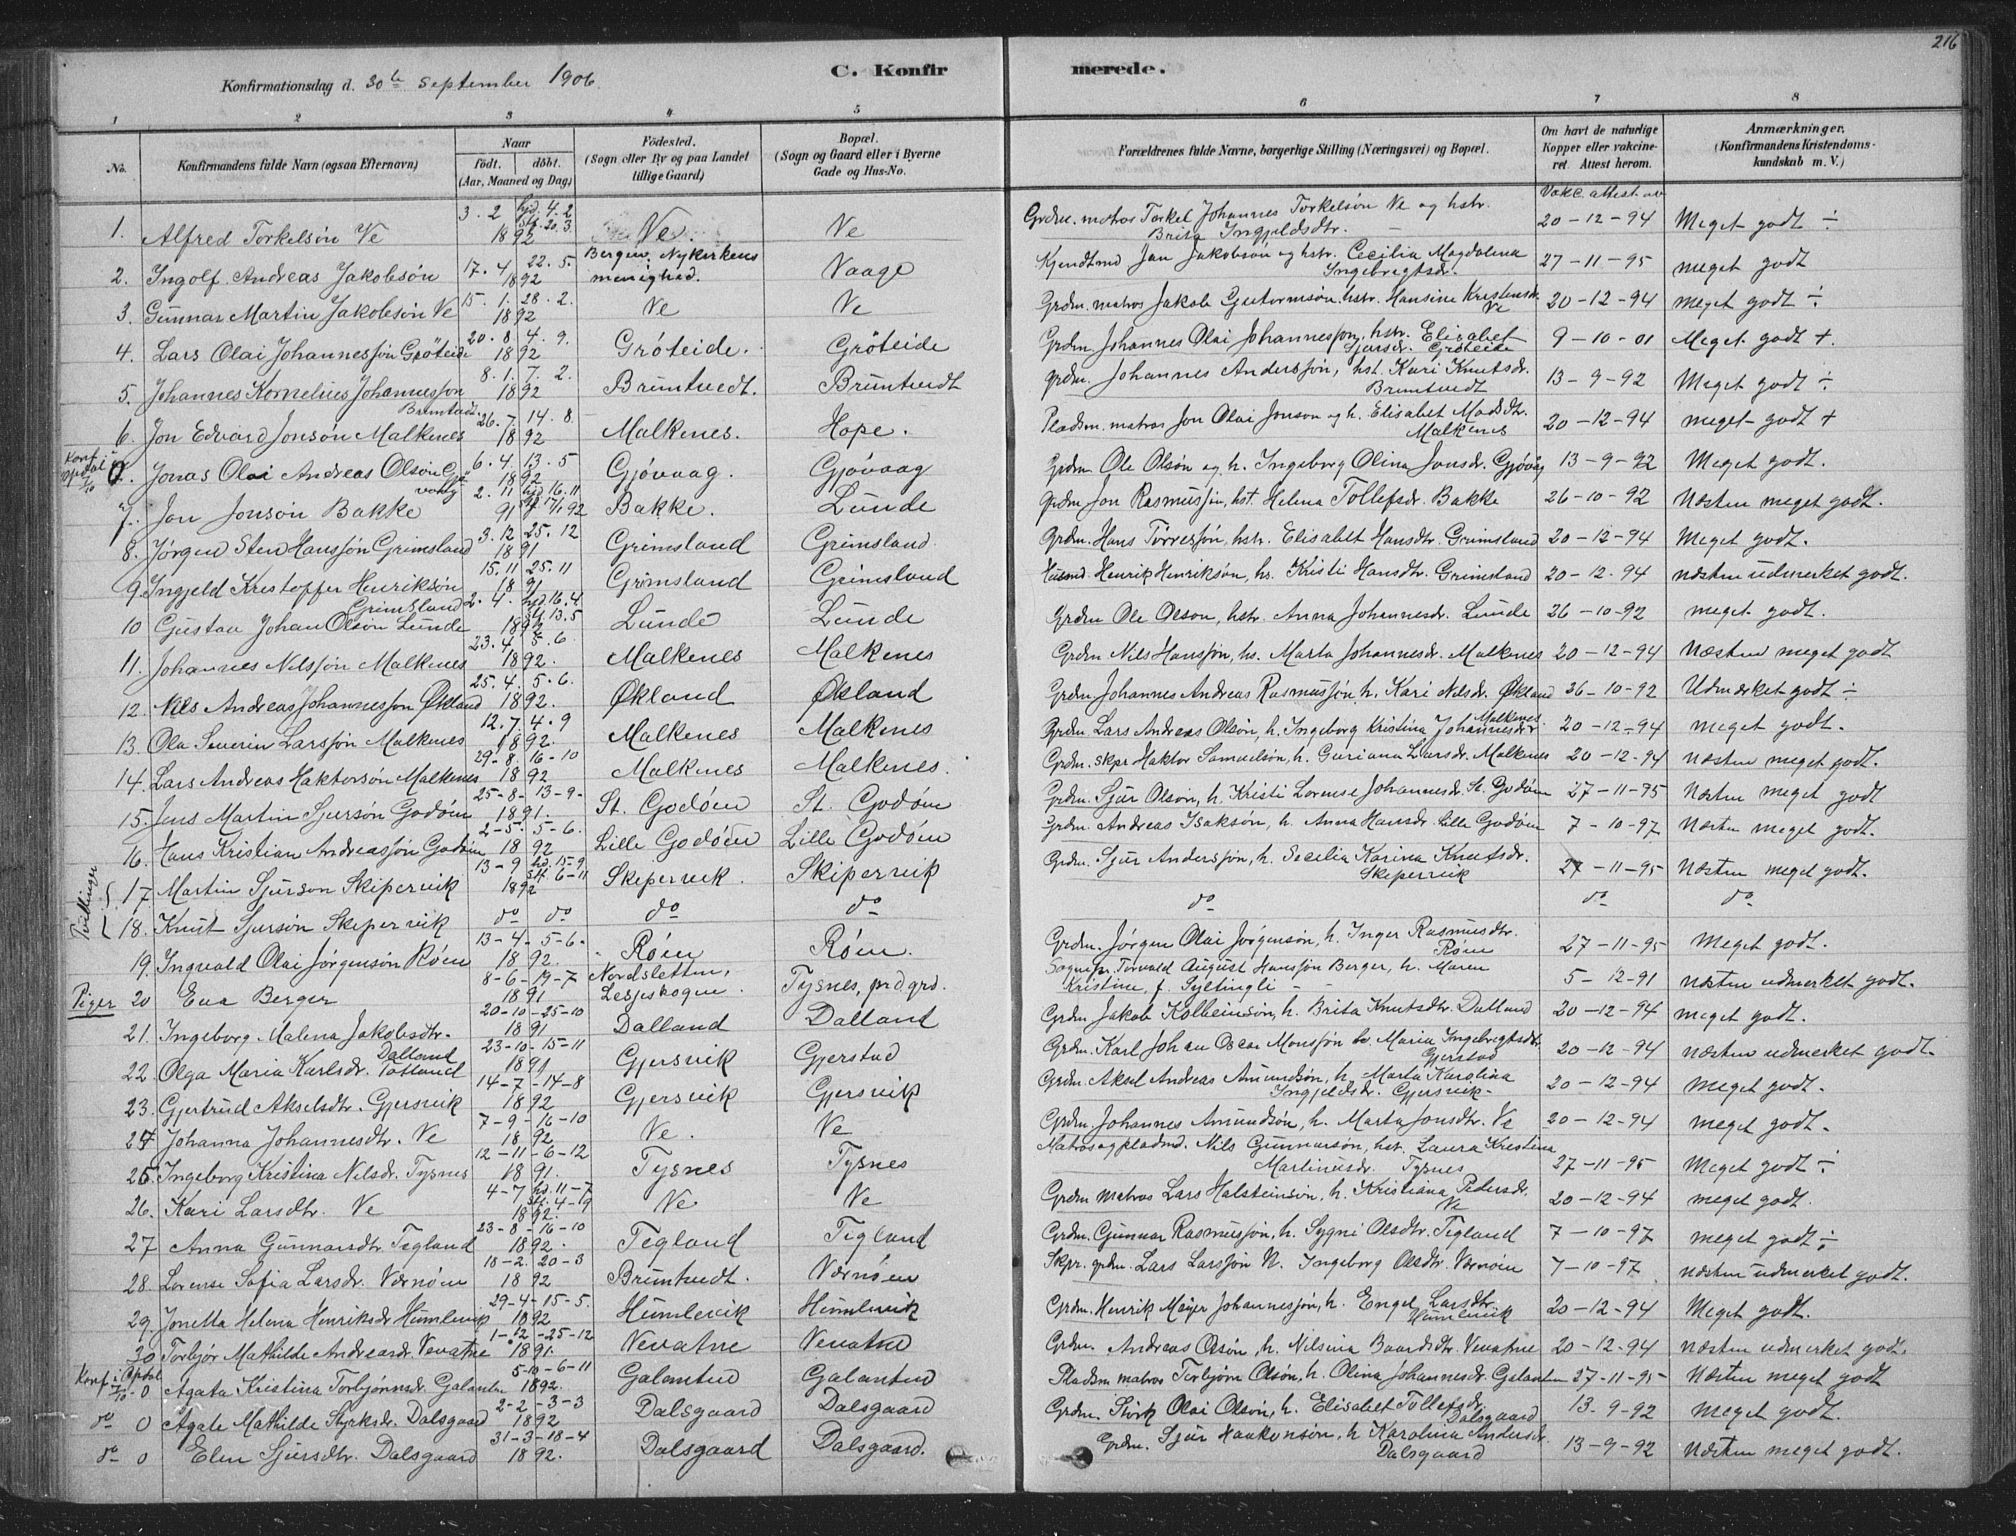 216
Konfirmationsdag d. 30te September 1906.
C. Konfirmerede.
1 2 3 4 5 6 7 8
No.
Konfirmandens fulde Navn (ogsaa Efternavn)
Naar
födt. döbt.
(Aar, Maaned og Dag)
Födested.
(Sogn eller By og paa Landet
tillige Gaard)
Bopæl.
(Sogn og Gaard eller i Byerne
Gade og Hus-No.
Forældrenes fulde Navne, borgerlige Stilling (Næringsvei) og Bopæl.
Om havt de naturlige
Kopper eller vakcine-
ret. Attest herom.
Anmærkninger.
(Konfirmandens Kristendoms-
kundskab m. V.)
Vakc. attest av
1. Alfred Torkelsön Ve 3.2 hjd. 4.2 St. 20.3 1892 Ve. Ve Grdm. matros Torkel Johannes Torkelsön Ve og hstr. Brita Ingjeldsdtr. 20-12-94 Meget godt ÷
2. Ingolf Andreas Jakobsön 17.4 22.5. 1892 Bergen. Nykirkens menighed. Vaage Kjendtmd Jan Jakobsön og hstr. Cecilia Magdalena Ingebregtsdr. 27-11-95 meget godt
3. Gunnar Martin Jakobsön Ve 15.1. 28.2. 1892 Ve Ve Grdm. matros Jakob Guttormsön. hstr. Hansine Kristensdr. Ve 20-12-94 meget godt ÷
4. Lars Olai Johannessön Gröteide 20.8 4.9. 1892 Gröteide. Gröteide Grdm Johannes Olai Johannessön, hstr. Elisabet Sjursdr. Gröteide 9-10-01 Meget godt +
5. Johannes Kornelius Johannessön Bruntvedt 8.1. 7.2. 1892 Bruntvedt. Bruntvedt grdm. Johannes Anderssön, hst. Kari Knutsdr. Bruntvedt 13-9-92 Meget godt ÷
6. Jon Edvard Jonsön Malkenes 26.7. 14.8 1892 Malkenes. Hope. Pladsm. matros Jon Olai Jonson og h. Elisabet Madsdtr. Malkenes 20-12-94 meget godt +
Konf. i Opdal 7/10 0. Jonas Olai Andreas Olsön Gjövaag 6.4 13.5 1892 Gjövaag. Gjövaag Grdm Ole Olsön og h. Ingeborg Olina Jonsdr. Gjövåg 13-9-92 Meget godt.
7. Jon Jonson Bakke 2.11 hjd. 16.11 91 St 17/1 92 Bakke. Lunde grdm Jon Rasmussön, hst. Helena Tollefsdr. Bakke 26-10-92 Næsten meget godt.
8. Jörgen Sten Hanssön Grimsland 3.12 25.12 1891 Grimsland Grimsland. Grdm. Hans Törressön, hstr. Elisabet Hansdtr. Grimsland 20-12-94 Meget godt.
9. Ingjeld Kristoffer Henriksön Grimsland 15.11 25.11 1891 Grimsland Grimsland Husmd. Henrik Henriksön, hs. Kristi Hansdtr. Grimsland 20-12-94 næsten udmerket godt.
10 Gustav Johan Olsön Lunde 2.4. hjd. 16.4 St. 13.5 1892 Lunde Lunde Grdm Ole Olson, hstr. Anna Johannesdr. Lunde 26-10-92 meget godt.
11. Johannes Nilssön Malkenes 23.4. 5.6. 1892. Malkenes Malkenes Grdm Nils Hanssön, hs. Marta Johannesdr. Malkenes 20-12-94 Næsten meget godt
12. Nils Andreas Johannesson Økland 25.4. 5.6. 1892. Økland Økland Grdm. Johannes Andreas Rasmussön, h. Kari Nilsdr. Økland 26-10-92 Udmerket godt ÷
13. Ola Severin Larssön Malkenes 12.7. 4.9 1892. Malkenes Malkenes Grdm. Lars Andreas Olsön, h. Ingeborg Kristina Johannesdr Malkenes. 20-12-94 meget godt.
14. Lars Andreas Haktorson Malkenes 29-8. 16-10 1892 Malkenes Malkenes. Grdm. skpr Haktor Samuelsön, h. Guriana Larsdr. Malkenes 20-12-94 næsten meget godt.
15. Jens Martin Sjursön Godöm 25-8- 13-9- 1891. St. Godöm St. Godöm Grdm. Sjur Olson, h. Kristi Lorense Johannesdr. St. Godöm 27-11-95 Næsten meget godt
16. Hans Kristian Andreassön Godöm 2-5. 5-6. 1892 Lille Godöm Lille Godöm Grdm. Andreas Isaksön, h. Anna Hansdr. Lille Godöm 7-10-97 Næsten meget godt.
Tvillinger
17. Martin Sjurson Skipervik 13-9 hd. 15-9 St. 6-11 1892 Skipervik. Skipervik Grdm. Sjur Anderssön, h. Secilia Karina Knutsdr. Skipervik 27-11-95 Næsten meget godt.
18. Knut Sjursön Skipervik do do do do do do do
19. Ingvald Olai Jörgensön Röen 13-4- 5-6- 1892. Röen Röen. Grdm. Jörgen Olai Jörgensön, h. Inger Rasmusdtr. Röen 27-11-95 Meget godt.
Piger 20 Eva Berger 8-6- 19-7 1891 Nordsletten, Lesjeskogen. Tysnes, prdgrd. Sognepr. Torvald August Hanssön Berger, h. Maren Kristine, f. 5-12-91 næsten udmerket godt.
21. Ingeborg Malena Jakobsdtr. Dalland 20-10-25-10 1891 Dalland Dalland Grdm Jakob Kolbeinsön, h. Brita Knutsdtr. Dalland 20-12-94 meget godt.
22. Olga Maria Karlsdr. 23-10-15-11 1891 Gjersvik Gjerstad Grdm. Karl Johan Oscar Monssön h. Maria Ingebregtsdtr. Gjerstad 20-12-94 næsten udmerket godt.
23. Gjertrud Akselsdtr. Gjersvik 14-7-14-8 1892 Gjersvik Gjersvik Grdm. Aksel Andreas Amundsön, h. Marta Karolina Ingjeldsdr. Gjersvik- 20-12-94 Meget godt.
24 Johanna Johannesdtr. Ve 7-9-16-10 1892 Ve. Ve Grdm. Johannes Amundsön, h. Marta Jonsdtr. Ve 20-12-94 meget godt.
25 Ingeborg Kristina Nilsdr. Tysnes 12-11-6-12 1891. Tysnes Tysnes Matros og pladsmd. Nils Gunnarsön, hst. Laura Kristina Martinusdr. Tysnes 27-11-95 Meget godt ÷
26. Kari Larsdtr. Ve 4-7 hd. 11-7 St. 4-9 1892. Ve Ve Grdm matros Lars Halsteinsön, h. Kristiana Pedersdr. Ve 20-12-94 meget godt.
27 Anna Gunnarsdtr Tegland 23-8-16-10 1892. Tegland Tegland Grdm. Gunnar Rasmussön, h. Sygni Olsdtr. Tegland 7-10-97 meget godt ÷
28. Lorense Sofia Larsdr. Værnöen 18-2. 20-3 1892 Bruntvedt. Værnöen Skpr. grdm. Lars Larssön N. Ingeborg Olsdtr. Værnöen 7-10-97. næsten udmerket godt.
29. Jonetta Helena Henriksdr Humlevik 29-4-15-5. 1892 Humlevik Humlevik Grdm. Henrik Meyer Johannessön, h. Engel Larsdtr. Humlevik 20-12-94 Meget godt.
30 Torbjör Mathilde Andreasdr. Vevatne 1-12-25-12 1891. Vevatne Vevatne Grdm. Andreas Olsön, h. Nilsina Baardsdtr. Vevatne 20-12-94 næsten udmerket godt.
Konf. i Opdal 7/10 0 Agata Kristina Torbjörnsdr. Galanten 5-10-6-11 1892. Galanten Galanten Pladsm matros Torbjörn Olsön, h. Olina Johannesdr. Galanten 27-11-95 Næsten meget godt
do 0 Agate Mathilde Styrksdr. Dalsgaard 2-2-3-3 1892 Dalsgaard Dalsgaard Grdm. Störk Olai Olsön, h. Elisabet Tollefsdr. Dalsgaard 13-9-92 meget godt.
do 0 Elen Sjursdtr. Dalsgaard 31-3-18-4 1892. Dalsgaard Dalsgaard. Grdm. Sjur Haakonsön, h Karolina Andersdr. Dalsgaard 13-9-92 Næsten meget godt.